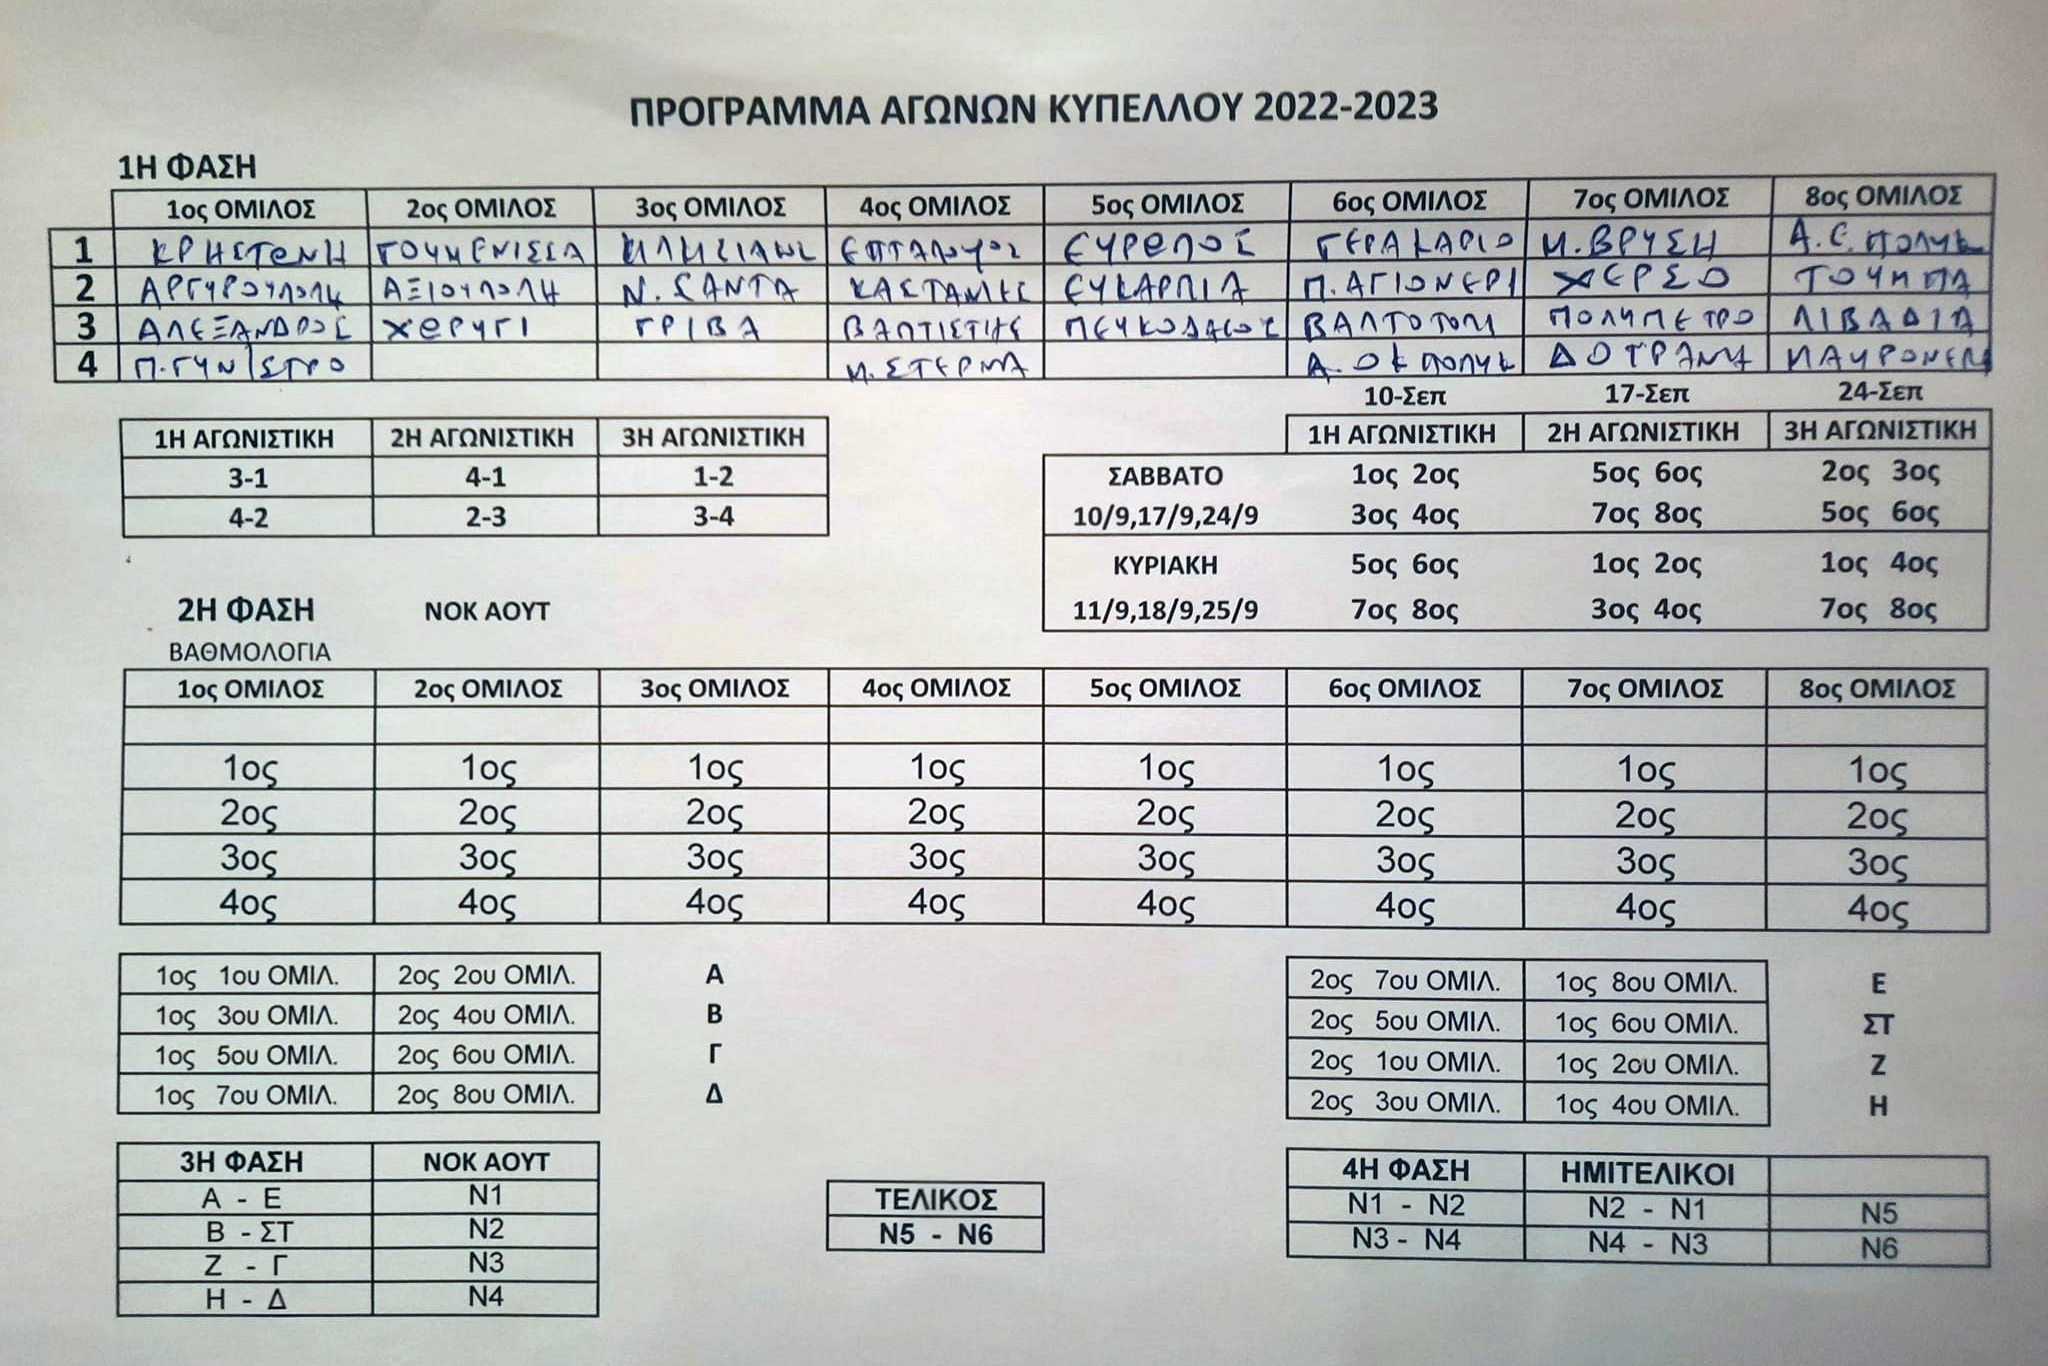 ΠΡΟΓΡΑΜΜΑ ΑΓΩΝΩΝ ΚΥΠΕΛΛΟΥ 2022-2023
1Η ΦΑΣΗ
1ος ΟΜΙΛΟΣ 2ος ΟΜΙΛΟΣ 3ος ΟΜΙΛΟΣ 4ος ΟΜΙΛΟΣ 5ος ΟΜΙΛΟΣ 6ος ΟΜΙΛΟΣ 7ος ΟΜΙΛΟΣ 8ος ΟΜΙΛΟΣ
1 ΚΡΗΣΤΩΝΗ ΓΟΥΜΕΝΙΣΣΑ ΕΠΤΑΛΟΦΟΣ ΕΥΡΩΠΟΣ ΓΕΡΑΚΑΡΙΟ Μ. ΒΡΥΣΗ Α.Ε. ΠΟΛΥΚ
2 ΑΡΓΥΡΟΥΠΟΛΗ ΑΞΙΟΥΠΟΛΗ Ν. ΣΑΝΤΑ ΕΥΚΑΡΠΙΑ Π. ΑΓΙΟΝΕΡΙ ΧΕΡΣΟ ΤΟΥΜΠΑ
3 ΑΛΕΞΑΝΔΡΟΣ ΧΩΡΥΓΙ ΓΡΙΒΑ ΒΑΠΤΙΣΤΗΣ ΠΕΥΚΟΔΑΣΟΣ ΒΑΛΤΟΤΟΠΙ ΠΟΛΥΠΕΤΡΟ ΛΙΒΑΔΙΑ
4 Π. ΓΥΝ/ΣΤΡΟ Μ. ΣΤΕΡΝΑ Α.Ο.Κ ΠΟΛΥΚ ΔΟΙΡΑΝΗ
10-Σεπ 17-Σεπ 24-Σεπ
1Η ΑΓΩΝΙΣΤΙΚΗ 2Η ΑΓΩΝΙΣΤΙΚΗ 3Η ΑΓΩΝΙΣΤΙΚΗ 1Η ΑΓΩΝΙΣΤΙΚΗ 2Η ΑΓΩΝΙΣΤΙΚΗ 3Η ΑΓΩΝΙΣΤΙΚΗ
3-1 4-1 1-2 ΣΑΒΒΑΤΟ 1ος 2ος 5ος 6ος 2ος 3ος
4-2 2-3 3-4 10/9,17/9,24/9 3ος 4ος 7ος 8ος 5ος 6ος
ΚΥΡΙΑΚΗ 5ος 6ος 1ος 2ος 1ος 4ος
2Η ΦΑΣΗ ΝΟΚ ΑΟΥΤ 11/9,18/9,25/9 7ος 8ος 3ος 4ος 7ος 8ος
ΒΑΘΜΟΛΟΓΙΑ
1ος ΟΜΙΛΟΣ 2ος ΟΜΙΛΟΣ 3ος ΟΜΙΛΟΣ 4ος ΟΜΙΛΟΣ 5ος ΟΜΙΛΟΣ 6ος ΟΜΙΛΟΣ 7ος ΟΜΙΛΟΣ 8ος ΟΜΙΛΟΣ
1ος 1ος 1ος 1ος 1ος 1ος 1ος 1ος
2ος 2ος 2ος 2ος 2ος 2ος 2ος 2ος
3ος 3ος 3ος 3ος 3ος 3ος 3ος 3ος
4ος 4ος 4ος 4ος 4ος 4ος 4ος 4ος
1ος 1ου ΟΜΙΛ. 2ος 2ου ΟΜΙΛ. Α 2ος 7ου ΟΜΙΛ. 1ος 8ου ΟΜΙΛ. Ε
1ος 3ου ΟΜΙΛ. 2ος 4ου ΟΜΙΛ. Β 2ος 5ου ΟΜΙΛ. 1ος 6ου ΟΜΙΛ. ΣΤ
1ος 5ου ΟΜΙΛ. 2ος 6ου ΟΜΙΛ. Γ 2ος 1ου ΟΜΙΛ. 1ος 2ου ΟΜΙΛ. Ζ
1ος 7ου ΟΜΙΛ. 2ος 8ου ΟΜΙΛ. Δ 2ος 3ου ΟΜΙΛ. 1ος 4ου ΟΜΙΛ. Η
3Η ΦΑΣΗ ΝΟΚ ΑΟΥΤ 4Η ΦΑΣΗ ΗΜΙΤΕΛΙΚΟΙ
Α - Ε Ν1 ΤΕΛΙΚΟΣ Ν1 - Ν2 Ν2 - Ν1 Ν5
Β - ΣΤ Ν2 Ν5 - Ν6 Ν3 - Ν4 Ν4 - Ν3 Ν6
Ζ - Γ Ν3
Η - Δ Ν4